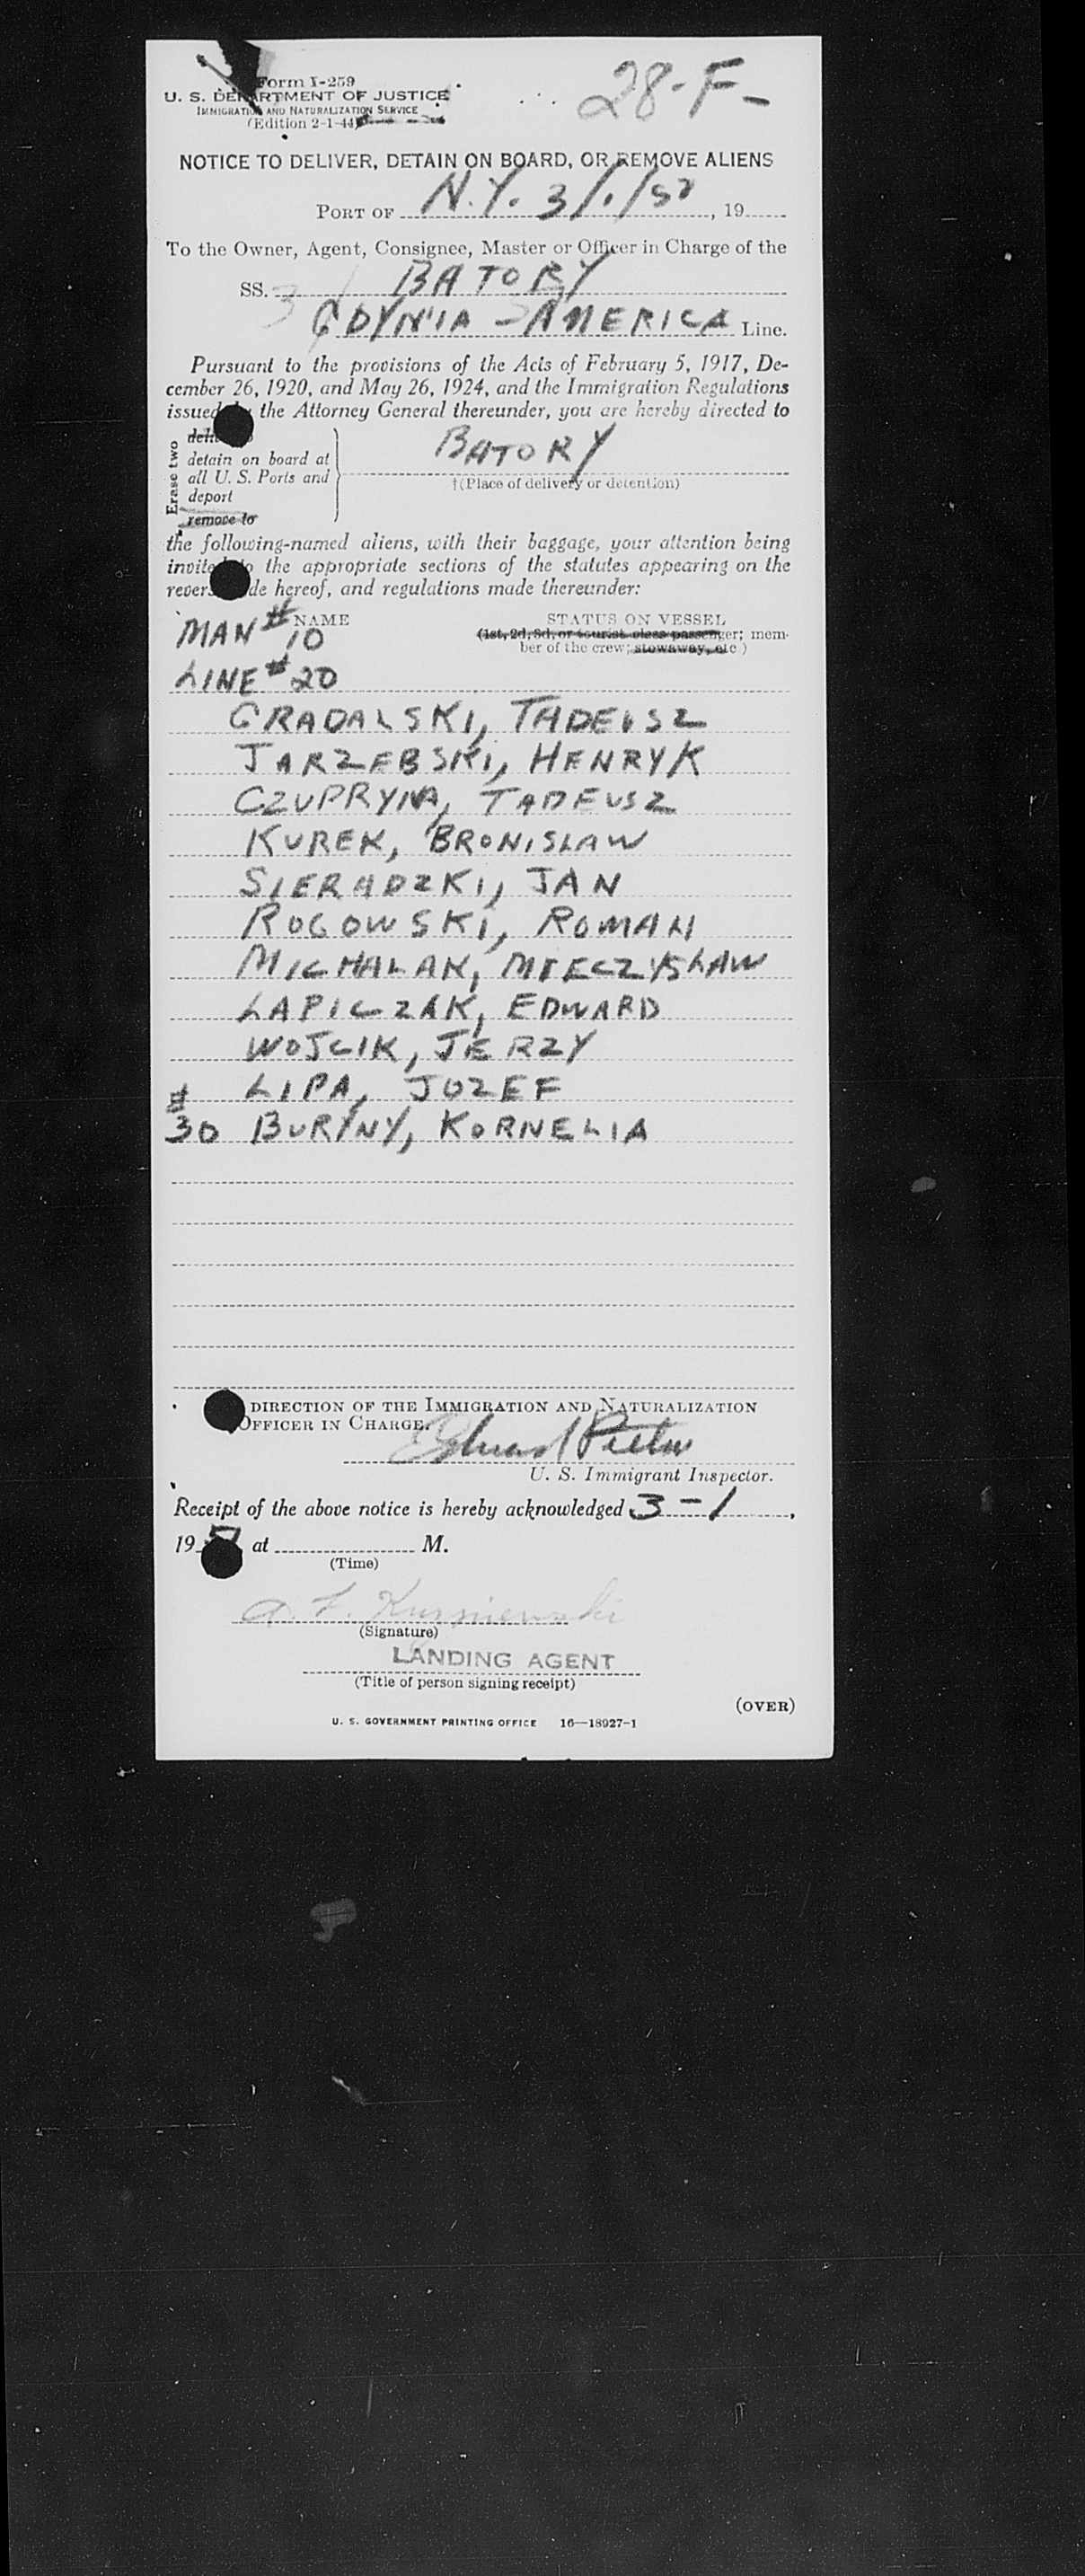 28-F-
Form I-259
U. S. DEPARTMENT OF JUSTICE
IMMIGRATION AND NATURALIZATION SERVICE
(Edition 2-1-44)
NOTICE TO DELIVER, DETAIN ON BOARD, OR REMOVE ALIENS
PORT OF N.Y. 3/1/50, 19
To the Owner, Agent, Consignee, Master or Officer in Charge of the
SS. BATORY
GDYNIA - AMERICA Line.
Pursuant to the provisions of the Acts of February 5, 1917, De-
cember 26, 1920, and May 26, 1924, and the Immigration Regulations
issued by the Attorney General thereunder, you are hereby directed to
Erase two
deliver to
detain on board at
all U. S. Ports and
deport
remove to
BATORY
†(Place of delivery or detention)
the following-named aliens, with their baggage, your attention being
invited to the appropriate sections of the statutes appearing on the
reverse side hereof, and regulations made thereunder:
NAME STATUS ON VESSEL
(1st, 2d, 3d, or tourist class passenger; mem-
ber of the crew; stowaway, etc.)
MAN # 10
LINE # 20
GRADALSKI, TADEUSZ
JARZEBSKI, HENRYK
CZUPRYNA, TADEUSZ
KUREK, BRONISLAW
SIERADZKI, JAN
ROGOWSKI, ROMAN
MICHALAK, MIECZYSLAW
LAPICZAK, EDWARD
WOJCIK, JERZY
LIPA, JOZEF
# 30 BURYNY, KORNELIA
DIRECTION OF THE IMMIGRATION AND NATURALIZATION
OFFICER IN CHARGE.
U. S. Immigrant Inspector.
Receipt of the above notice is hereby acknowledged 3-1,
19 at M.
(Time)
(Signature)
LANDING AGENT
(Title of person signing receipt)
(OVER)
U. S. GOVERNMENT PRINTING OFFICE 16—18927-1